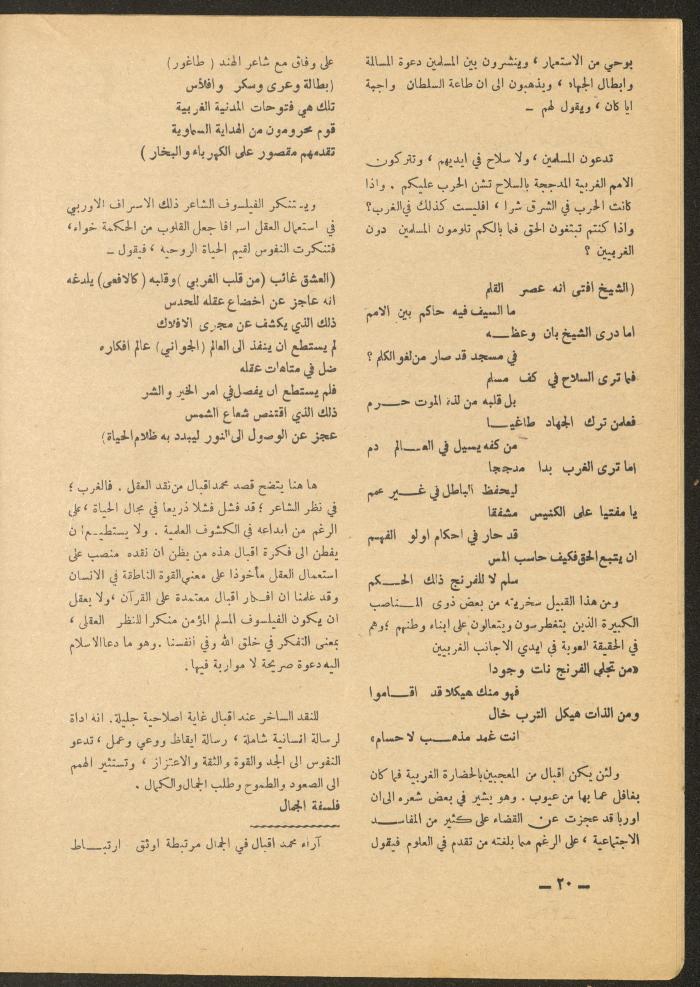 بوحي من الاستعمار ، وينشرون بين المسلمين دعوة المسالمة
وابطال الجهاد ، ويذهبون الى ان طاعة السلطان واجبة
ايا كان ، ويقول لهم ــ
تدعون المسلمين ، ولا سلاح في ايديهم ، وتتركون
الامم الغربية المدججة بالسلاح تشن الحرب عليكم . واذا
كانت الحرب في الشرق شرا ، افليست كذلك في الغرب؟
واذا كنتم تبتغون الحق فما بالكم تلومون المسلمين دون
الغربيين ؟
(الشيخ افتى انه عصر القلم
ما السيف فيه حاكم بين الامم
اما درى الشيخ بان وعظــه
في مسجد قد صار من لغو الكلم ؟
فما ترى السلاح في كف مسلم
بل قلبه من لذة الموت حـــرم
فعلمن ترك الجهاد طاغيــا
من كفه يسيل في العــالم دم
اما ترى الغرب بدا مدججا
ليحفظ الباطل في غـــير عمم
يا مفتيا على الكنيس مشفقا
قد حار في احكام اولو الفهم
ان يتبع الحق فكيف حاسب المس
سلم لا للفرنج ذاك الحــكم
ومن هذا القبيل سخريته من بعض ذوى المــناصب
الكبيرة الذين يتغطرسون ويتعالون على ابناء وطنهم ؛ وهم
في الحقيقة العوبة في ايدي الاجانب الغربيين
«من تجلي الفرنج نات وجودا
فهو منك هيكلا قد اقــاموا
ومن الذات هيكل الترب خال
انت غمد مذهـــب لا حسام»
ولئن يكن اقبال من المعجبين بالحضارة الغربية فما كان
بغافل عما بها من عيوب . وهو يشير في بعض شعره الى ان
اوربا قد عجزت عن القضاء على كثير من المفاســد
الاجتماعية ، على الرغم مما بلغته من تقدم في العلوم فيقول
على وفاق مع شاعر الهند ( طاغور )
(بطالة وعرى وسكر وافلاس
تلك هي فتوحات المدنية الغربية
قوم محرومون من الهداية السماوية
تقدمهم مقصور على الكهرباء والبخار )
ويستنكر الفيلسوف الشاعر ذلك الاسراف الاوربي
في استعمال العقل اسرافا جعل القلوب من الحكمة خواء،
فتنكرت النفوس لقيم الحياة الروحيه ، فيقول ــ
(العشق غائب (من قلب الغربي )وقلبه (كالافعى) يلدغه
انه عاجز عن اخضاع عقله للحدس
ذلك الذي يكشف عن مجرى الافلاك
لم يستطع ان ينفذ الى العالم (الجواني) عالم افكاره
ضل في متاهات عقله
فلم يستطع ان يفصل في امر الخير والشر
ذلك الذي اقتنص شعاع الشمس
عجز عن الوصول الى النور ليبدد به ظلام الحياة)
ها هنا يتضح قصد محمد اقبال من نقد العقل . فالغرب ؛
في نظر الشاعر ؛ قد فشل فشلا ذريعا في مجال الحياة ، على
الرغم من ابداعه في الكشوف العلمية . ولا يستطيــع ان
يفطن الى فكرة اقبال هذه من يظن ان نقده منصب على
استعمال العقل مأخوذا على معنى القوة الناطقة في الانسان
وقد علمنا ان افكار اقبال معتمدة على القرآن ، ولا يعقل
ان يكون الفيلسوف المسلم المؤمن منكرا للنظر العقلى ،
بمعنى التفكر في خلق الله وفي أنفسنا . وهو ما دعا الاسلام
اليه دعوة صريحة لا مواربة فيها .
للنقد الساخر عند اقبال غاية اصلاحية جليلة. انه اداة
لرسالة انسانية شاملة ، رسالة ايقاظ ووعي وعمل ، تدعو
النفوس الى الجد والقوة والثقة والاعتزاز ، وتستثير الهمم
الى الصعود والطموح وطلب الجمال والكمال .
فلسفة الجمال
آراء محمد اقبال في الجمال مرتبطة اوثق ارتبــاط
ــ ٢٠ ــ